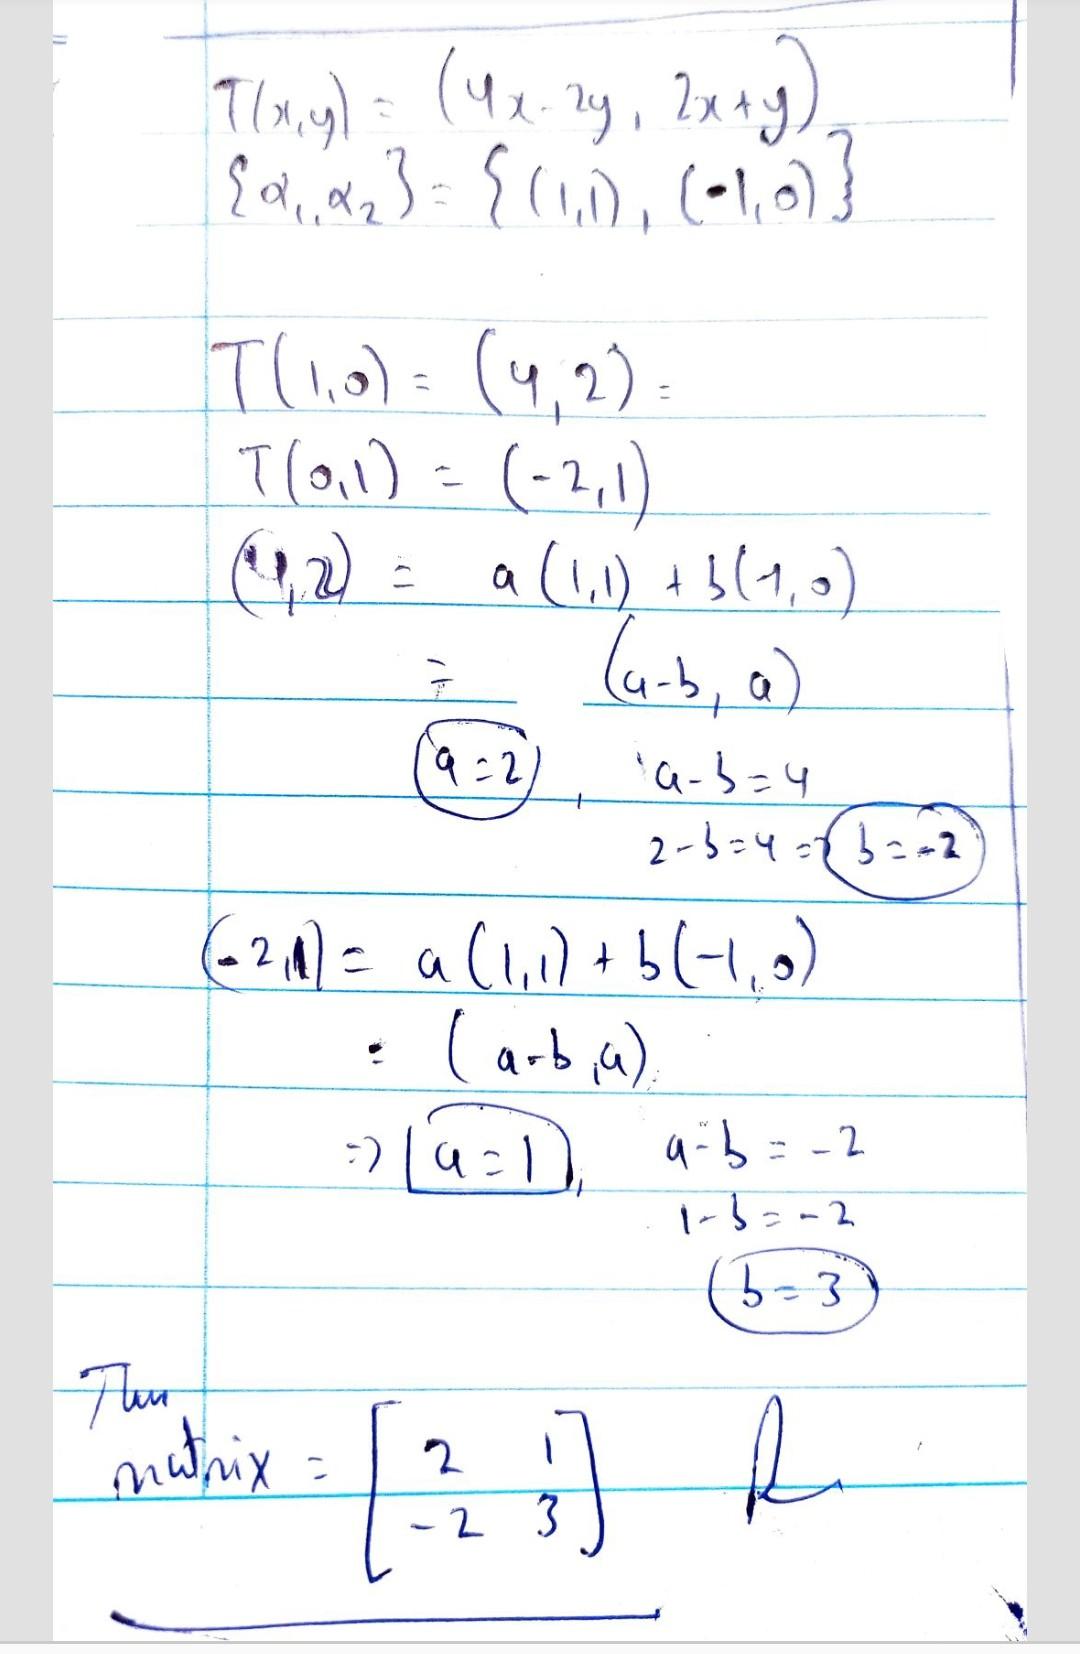 T(x,y) = (4x-2y, 2x+y)
{α₁, α₂} = {(1,1), (-1,0)}
T(1,0) = (4,2) =
T(0,1) = (-2,1)
(4,2) = a(1,1) + b(-1,0)
= (a-b, a)
a=2, a-b=4
2-b=4 => b=-2
(-2,1) = a(1,1) + b(-1,0)
= (a-b, a)
=> a=1, a-b = -2
1-b=-2
b=3
matrix = [2 1
-2 3]